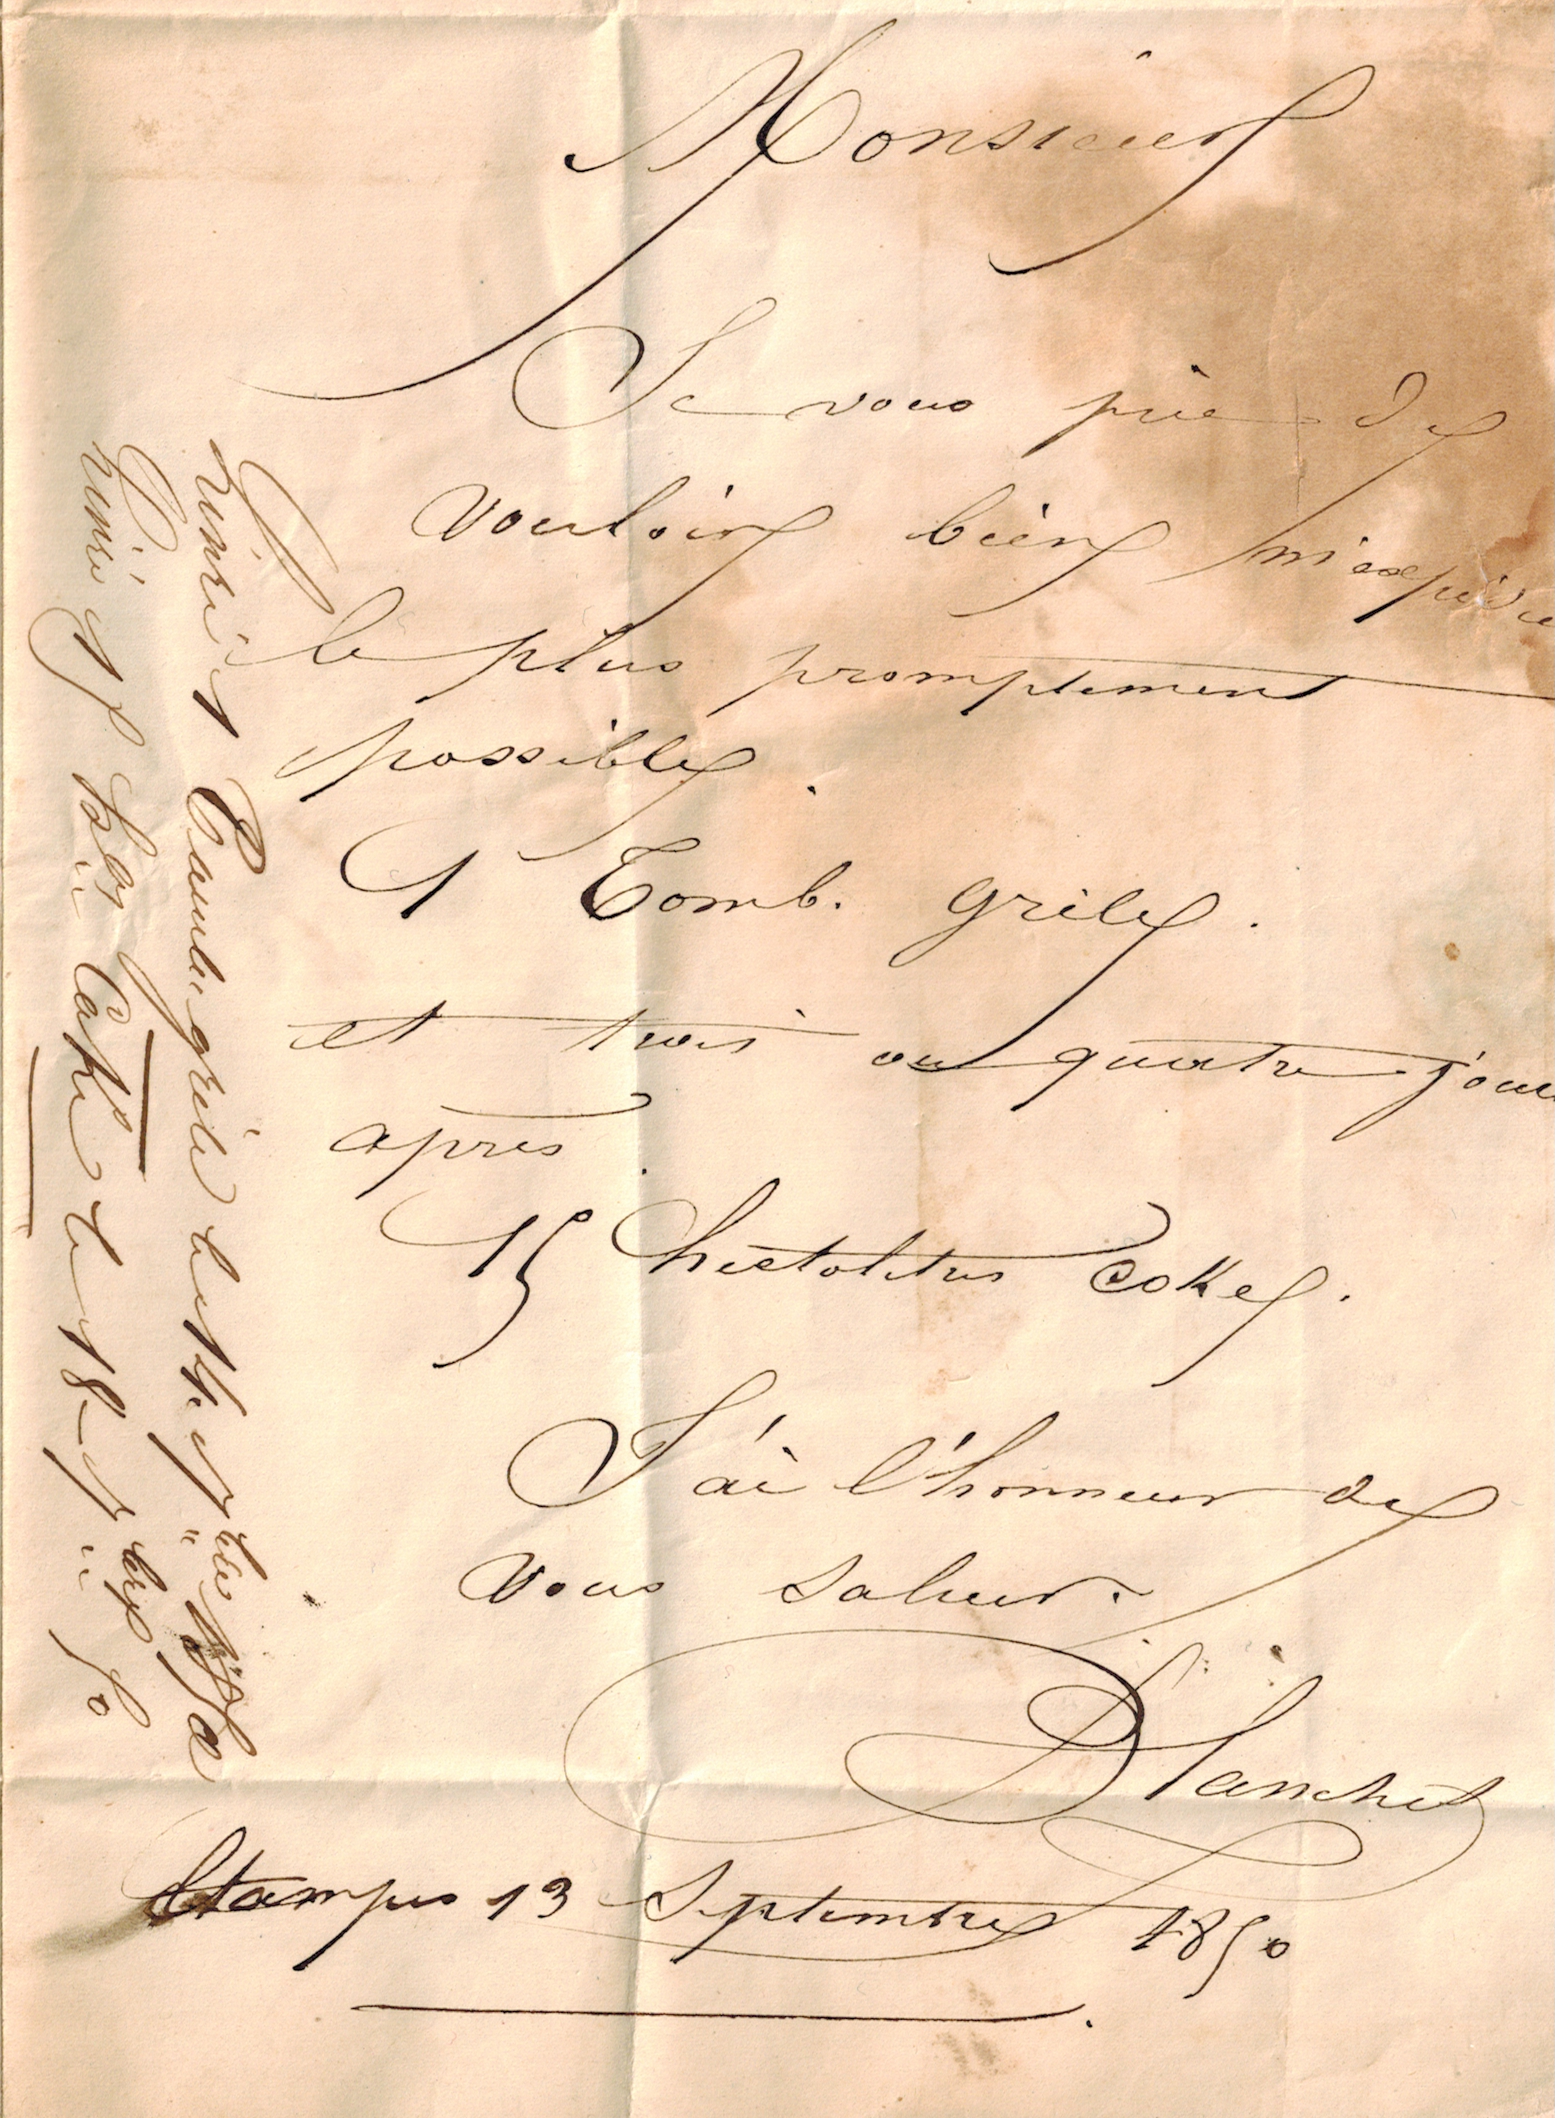 Monsieur
Je vous prie de
vouloir bien m'expédie
le plus promptement
possible.
1 Tomb. grêle.
et trois ou quatre jour
après.
15 hectolitres coke.
J'ai l'honneur de
vous saluer.
Blanchet
Etampes 13 Septembre 1850
grêle le 14. 7bre
Coke le 18 7bre 50